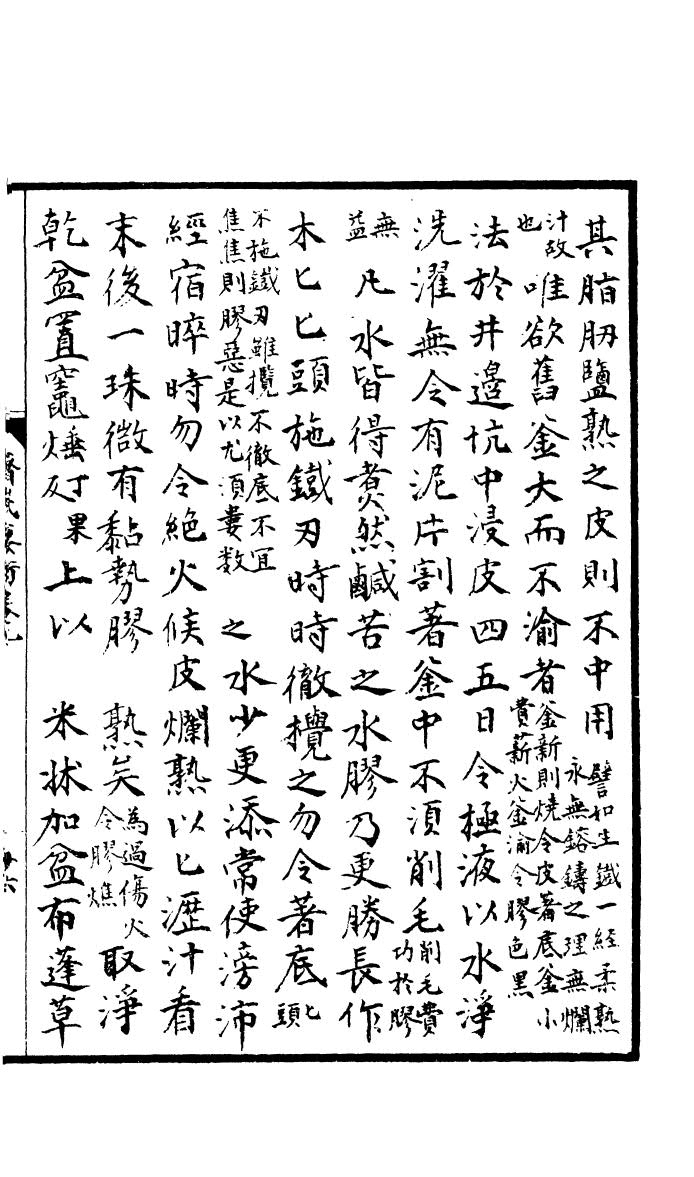 其脂肕鹽熟之皮則不中用譬如生鐵一經柔熟永無鎔鑄之理無爛
汁故也唯欲舊釜大而不渝者釜新則燒令皮著底釜小費薪火釜渝令膠色黑
法於井邉坑中浸皮四五日令極液以水淨
洗濯無令有泥片割著釜中不須削毛削毛費功於膠
無益凡水皆得煑然鹹苦之水膠乃更勝長作
木匕匕頭施鐵刃時時徹攪之勿令著底匕頭
不施鐵刃雖攪不徹底不宜焦焦則膠惡是以尤須婁數之水少更添常使滂沛
經宿晬時勿令絶火候皮爛熟以匕瀝汁看
末後一珠微有黏勢膠熟矣為過傷火令膠燋取淨
乾盆置竈埵丁果反上以米牀加盆布蓬草